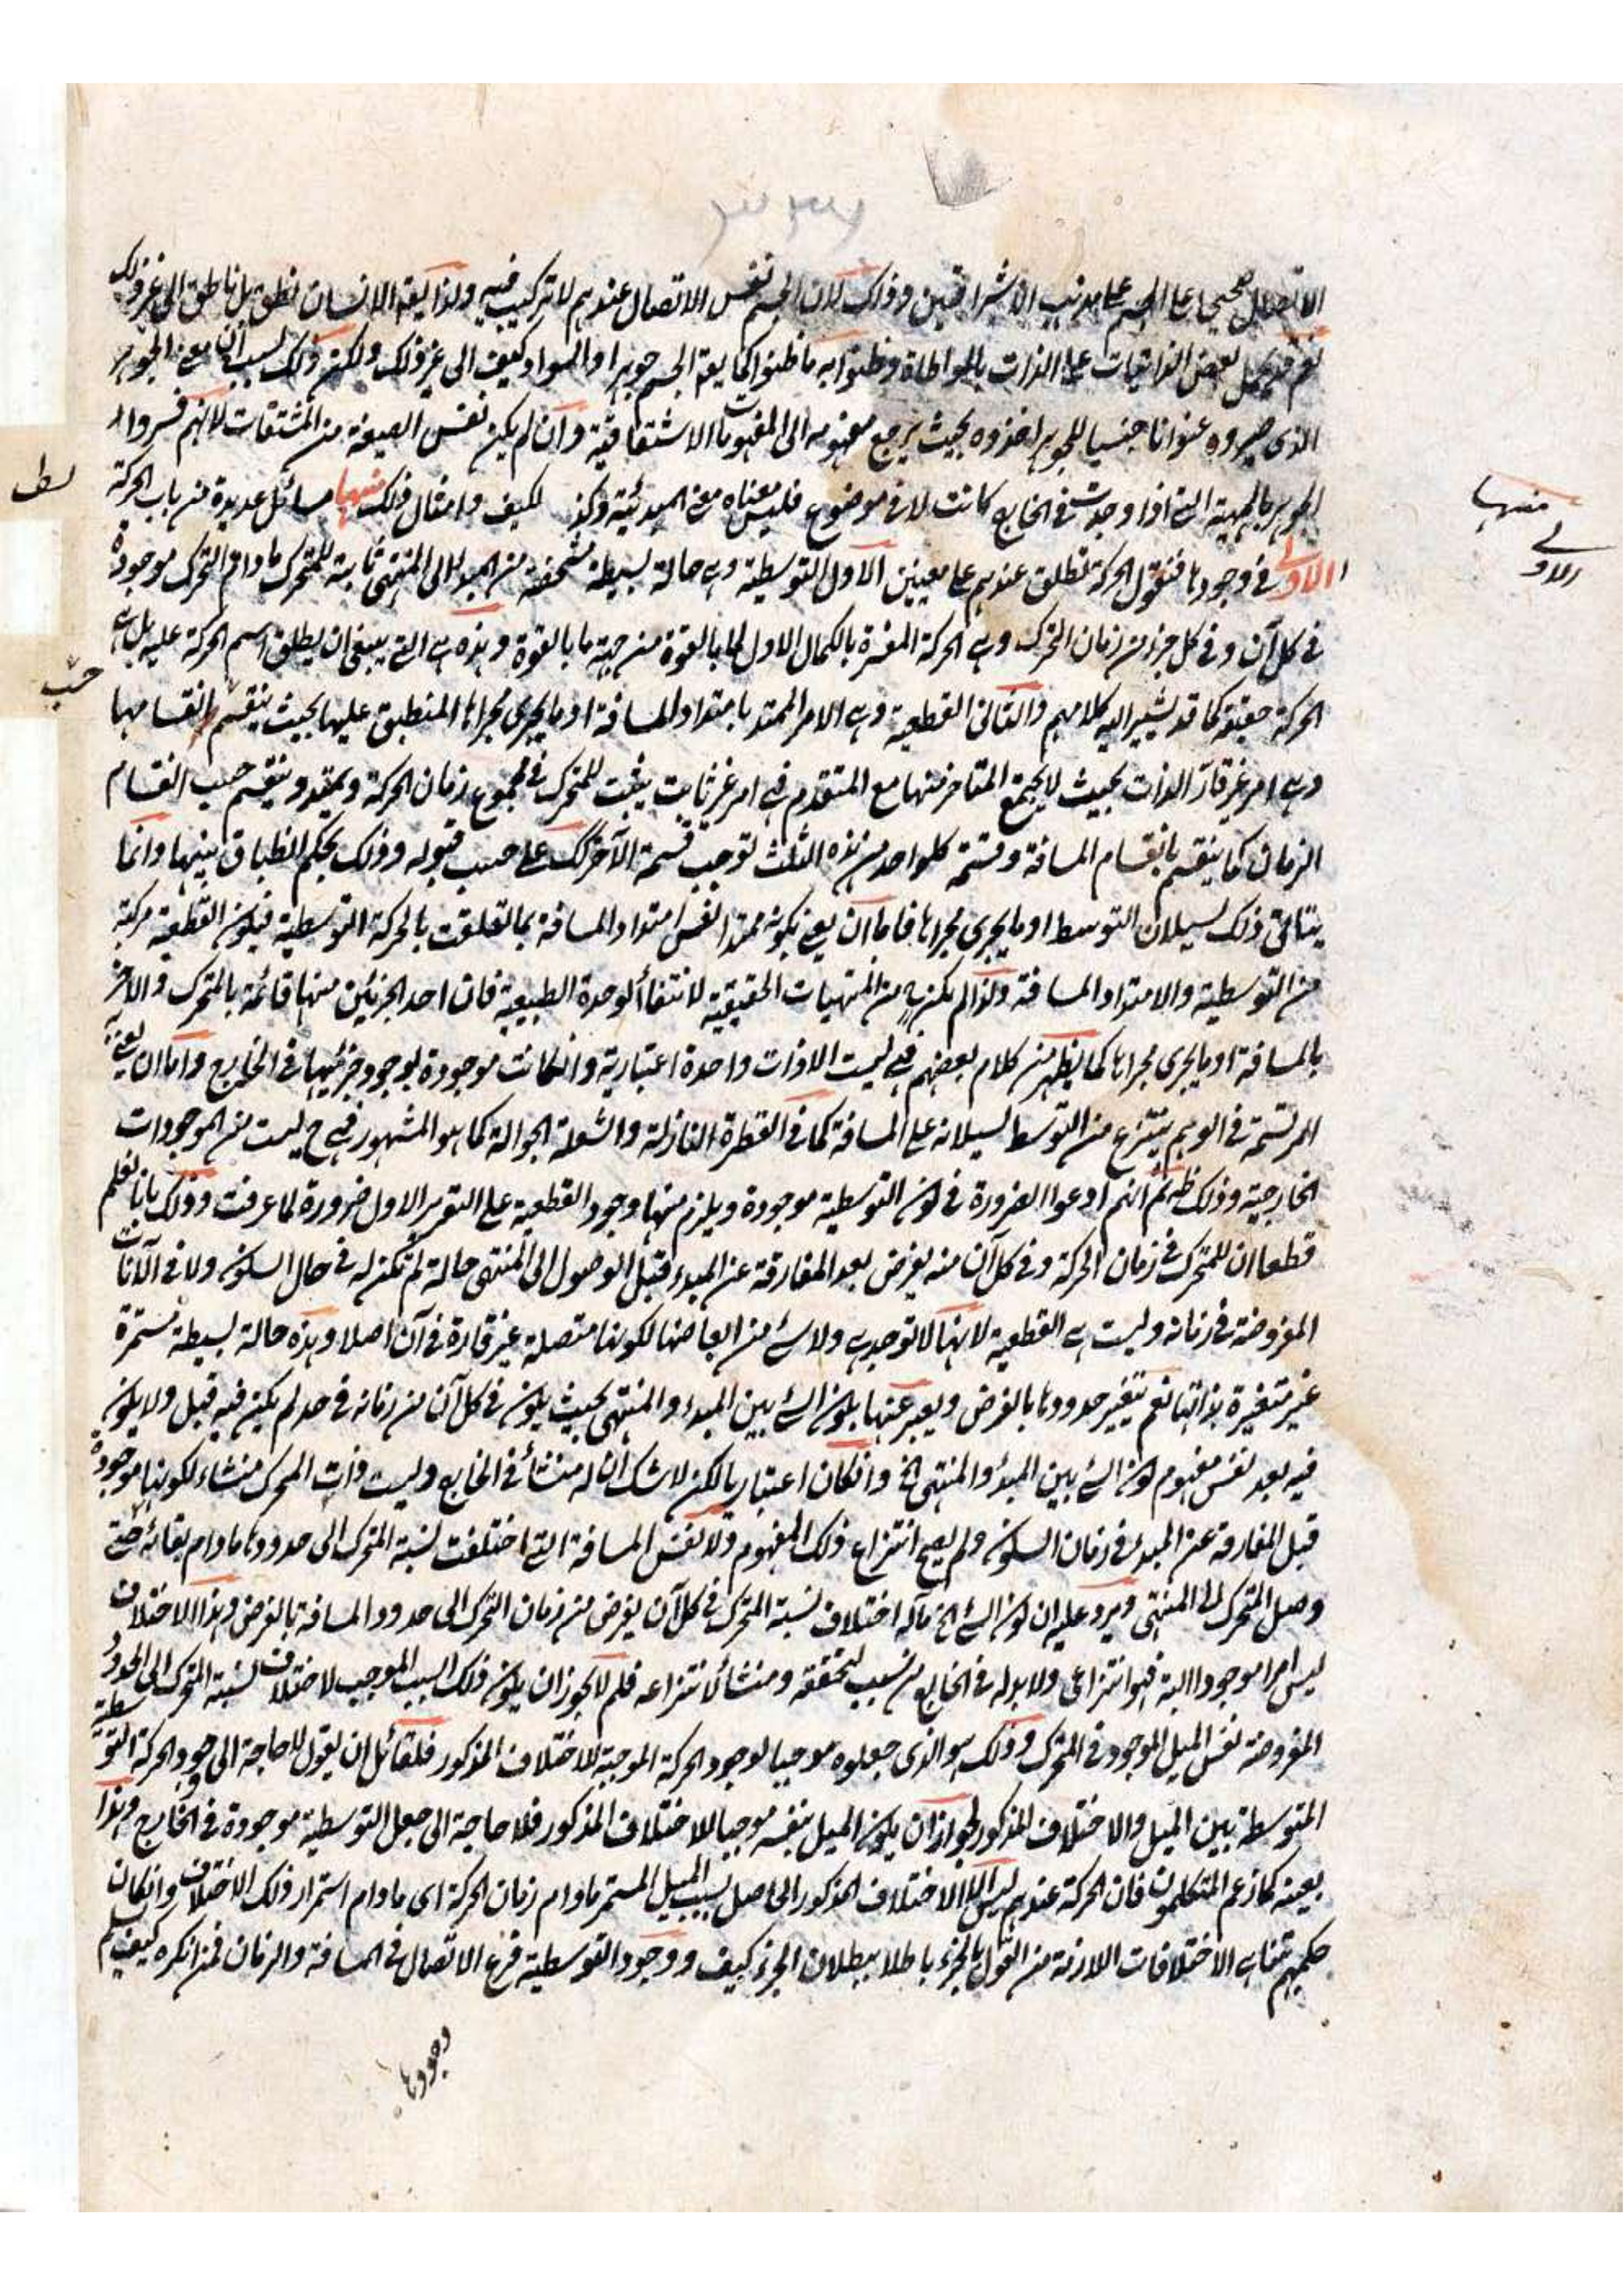 الاتصال صحيحا على الجسم على مذهب الاشراقيين وذلك لان الجسم نفس الاتصال عندهم لا تركيب فيه ولذا يقة الانسان نطق بل ناطق الى غير ذلك
نعم قد يحمل بعض الذاتيات على الذات بالمواطاة وظنوا به ما ظنوا كما يقة الجسم جوهر او السواد كيف الى غير ذلك ولكن ذلك بسبب ان معنى الجوهر
الذى صيروه عنوانا جنسيا للجوهر اخذوه بحيث يرجع مفهومه الى المفهومات الاشتقاقية وان لم يكن نفس الصيغة من المشتقات لانهم فسروا
الجوهر بالمهية التى اذا وجدت فى الخارج كانت لا فى موضوع فليس معناه معنى المبدئية وكذ لكيف وامثال ذلك منها مسائل عديدة من باب الحركة
الاولى فى وجودها فنقول الحركة تطلق عندهم على معنيين الاول التوسطية وهى حالة بسيطة مشخصة من المبدا الى المنتهى ثابتة للمتحرك ما دام التحرك موجودة
فى كل آن وفى كل جزء من زمان التحرك وهى الحركة المفسرة بالكمال الاول لما بالقوة من جهة ما بالقوة وهذه هى التى ينبغى ان يطلق اسم الحركة عليه بل هى
الحركة حقيقة كما قد يشير اليه كلامهم والثانى القطعية وهى الامر الممتد بامتداد المسافة او ما يجرى مجراها المنطبق عليها بحيث ينقسم بانقسامها
وهى امر غير قار الذات بحيث لا يجتمع المتاخر منها مع المتقدم فهى امر غير ثابت يثبت للمتحرك فى مجموع زمان الحركة ويمتد وينقسم حسب انقسام
الزمان كما ينقسم بانقسام المسافة وقسمة كلواحد من هذه الثلث توجب قسمة الآخر كك على حسب قبوله وذلك بحكم انطباق بينها وانما
يتاتى ذلك لسيلان التوسط او ما يجرى مجراها فاما ان يعنى بكونه ممتدا نفس امتداد المسافة بما تعلقت بالحركة التوسطية فيكون القطعية مركبة
من التوسطية والامتداد المسافة ولذا لم يكن من المهيات الحقيقية لانتفاء الوحدة الطبيعية فان احد الجزئين منها قائمة بالمتحرك والاخر
بالمسافة او ما يجرى مجراها كما يظهر من كلام بعضهم فهى ليست الا ذات واحدة اعتبارية وانكانت موجودة بوجود جزئيها فى الخارج واما ان يعنى به
المرتسمة فى الوهم ينتزع من التوسط لسيلانه على المسافة كما فى القطرة النازلة والشعلة الجوالة كما هو المشهور فهى ح ليست من الموجودات
الخارجية وذلك ظ ثم انهم ادعوا الضرورة فى كون التوسطية موجودة ويلزم منها وجود القطعية على التقرير الاول ضرورة لما عرفت وذلك بانا نعلم
قطعا ان للمتحرك فى زمان الحركة وفى كل آن منه يفرض بعد المفارقة عن المبدء وقبل الوصول الى المنتهى حالة لم تكن له فى حال السكون ولا فى الآنات
المفروضة فى زمانه وليست هى القطعية لانها لا توجد هى ولا شئ من ابعاضها لكونها متصلة غير قارة فى آن اصلا وهذه حالة بسيطة مستمرة
غير متغيرة بذاتها نعم يتغير حدودها بالفرض ويعبر عنها بكون الشئ بين المبدء والمنتهى بحيث يكون فى كل آن من زمانه فى حد لم يكن فيه قبل ولا يكون
فيه بعد نفس مفهوم كون الشئ بين المبدء والمنتهى الخ وانكان اعتباريا لكن لا شك ان له منشأ فى الخارج وليست ذات المتحرك منشاء لكونها موجودة
قبل المفارقة عن المبدء فى زمان السكون ولم يصح انتزاع ذلك المفهوم ولا نفس المسافة التى اختلفت نسبة المتحرك الى حدودها ما دام بقائه حتى
وصل المتحرك الى المنتهى ويرد عليه ان كون الشئ الخ مآله اختلاف نسبة المتحرك فى كل آن يفرض من زمان التحرك الى حدود المسافة بالفرض وهذا الاختلاف
ليس امرا موجودا البتة فهو انتزاعى ولا بد له فى الخارج من سبب لتحققه ومنشأ لانتزاعه فلم لا يجوز ان يكون ذلك السبب الموجب لاختلاف نسبة المتحرك الى الحدود
المفروضة نفس الميل الموجود فى المتحرك وذلك هو الذى جعلوه موجبا لوجود الحركة الموجبة للاختلاف المذكور فلقائل ان يقول لا حاجة الى وجود الحركة التوسطية
المتوسطة بين الميل والاختلاف المذكور لجواز ان يكون الميل بنفسه موجبا للاختلاف المذكور فلا حاجة الى جعل التوسطية موجودة فى الخارج وهذا
بعينه كما زعم المتكلمون فان الحركة عندهم ليس الا الاختلاف المذكور الحاصل بسبب الميل المستمر ما دام زمان الحركة اى ما دام استمرار ذلك الاختلاف وانكان
حكمهم بتناهى الاختلافات اللازمة من القول بالجزء باطلا ببطلان الجزء كيف ووجود التوسطية فرع الاتصال فى المسافة والزمان فمن انكره كيف يسلم
وجودها
منها
الاولى